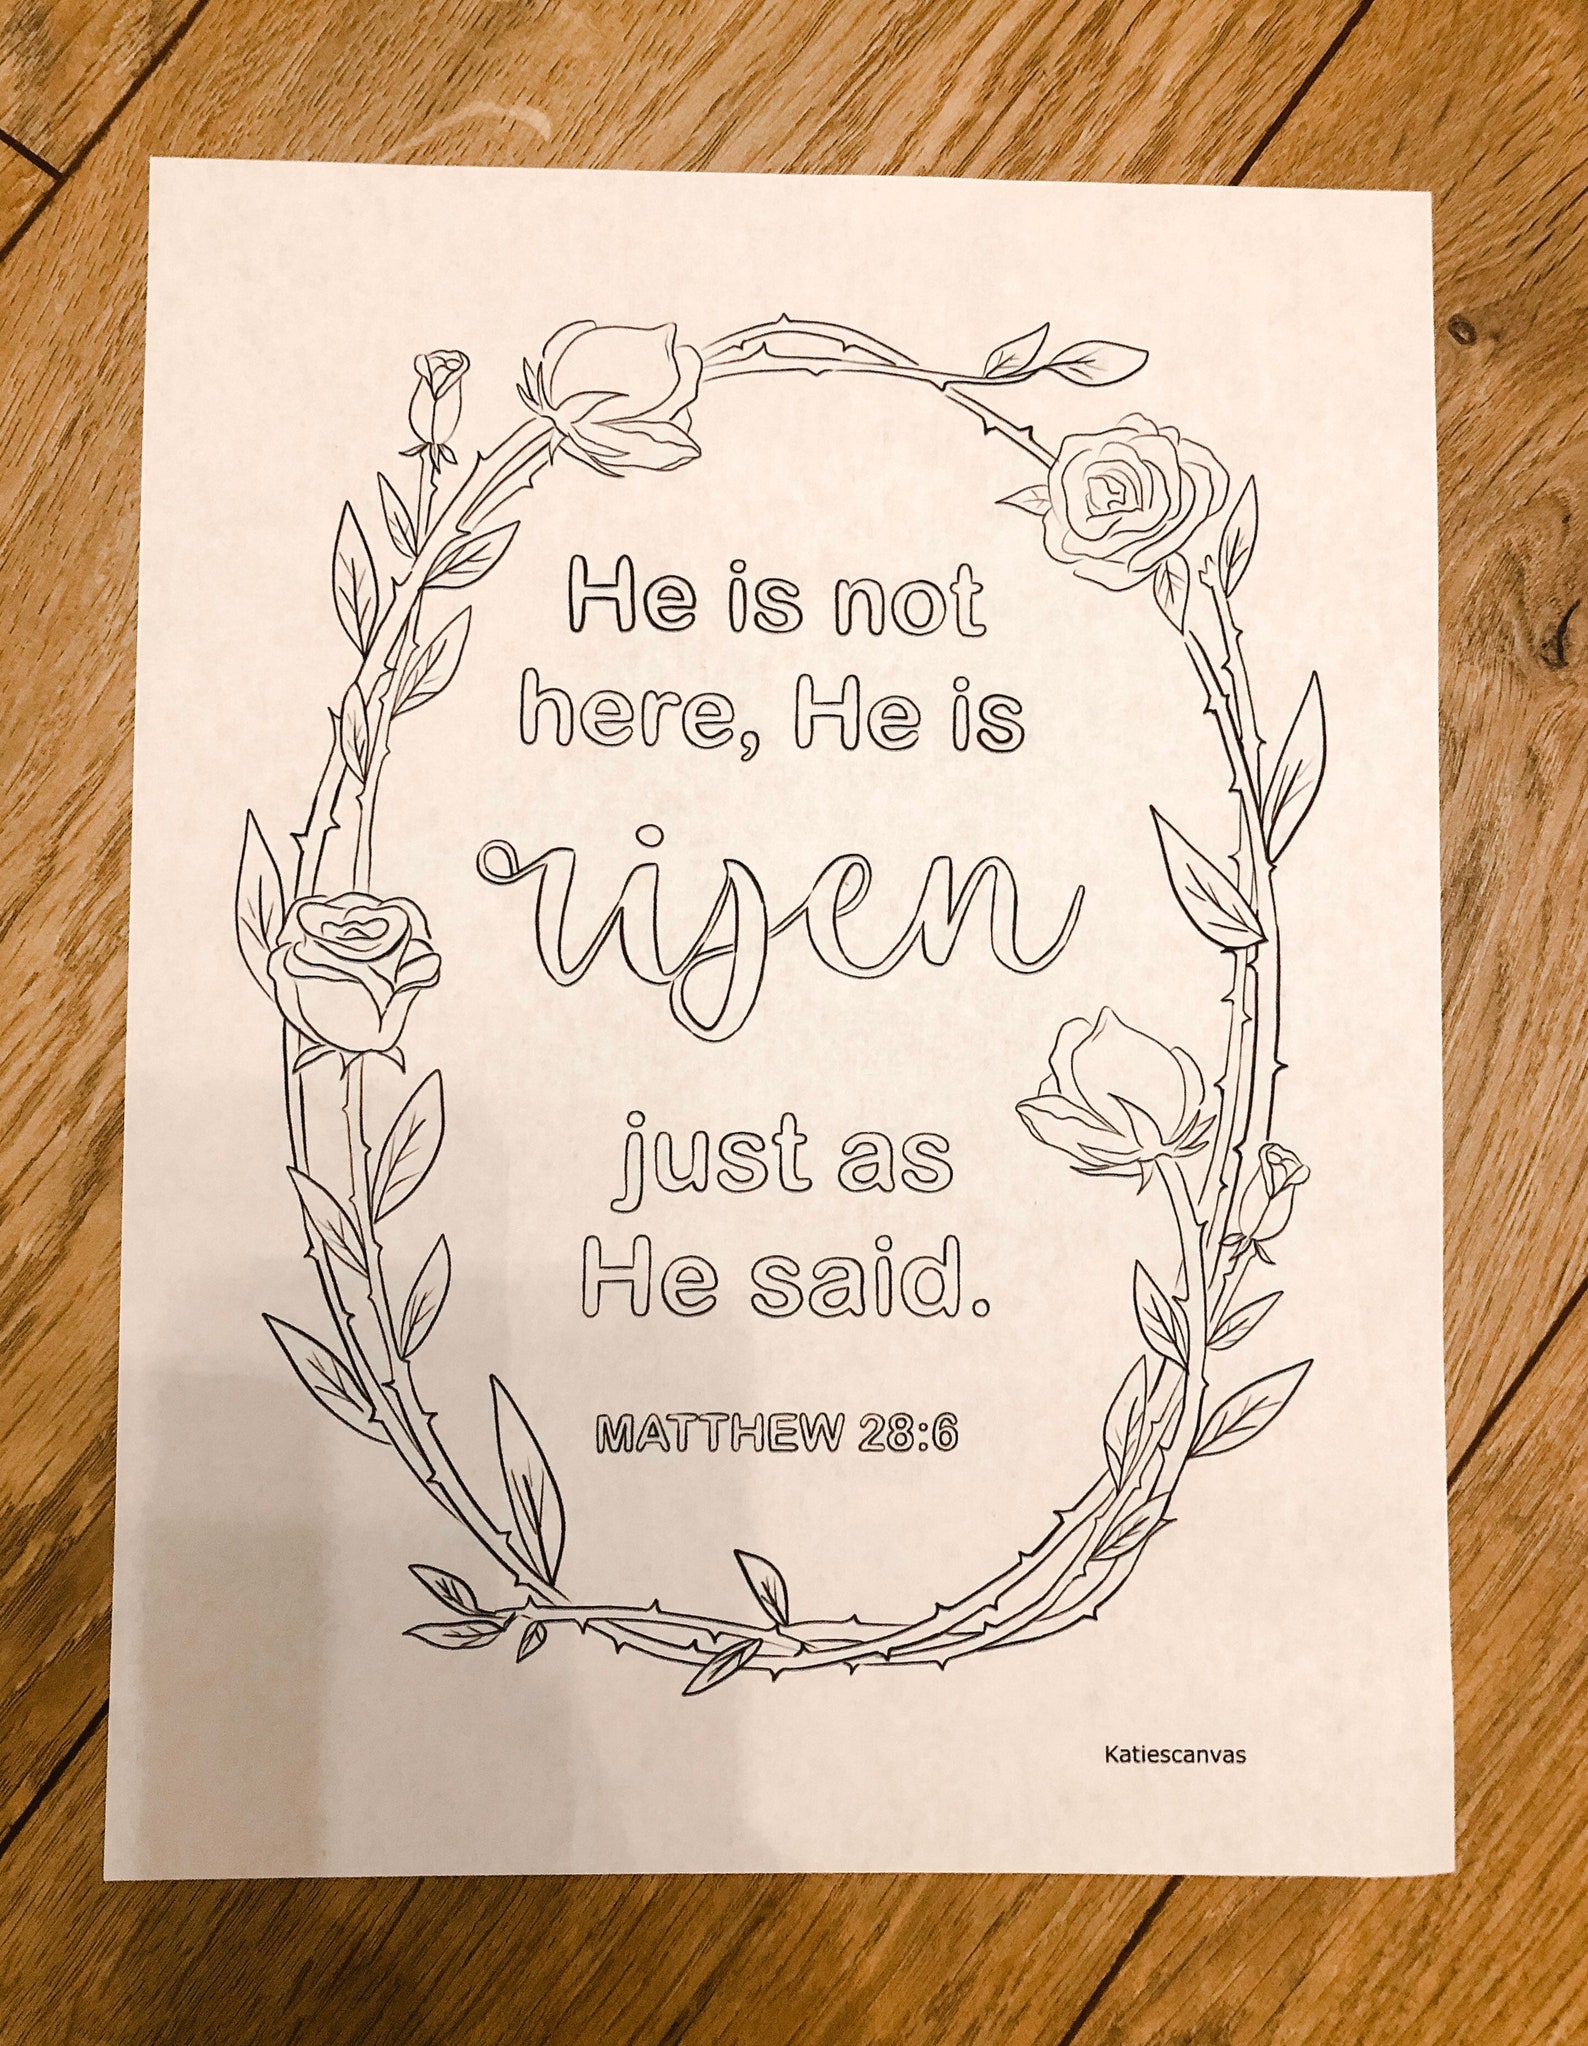 He is not
here, He is
risen
just as
He said.
MATTHEW 28:6
Katiescanvas